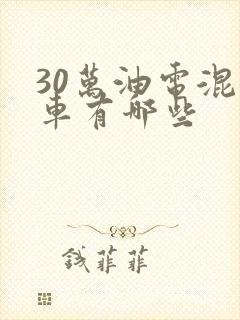 30萬油電混
車有哪些
錢菲菲